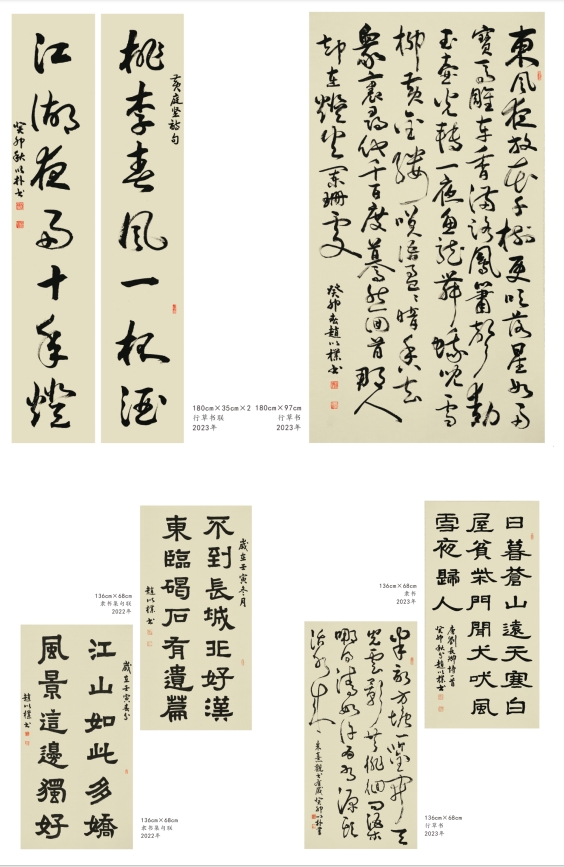 黄庭坚詩句
桃李春風一杯酒
江湖夜雨十年燈
癸卯秋以朴书
180cm×35cm×2
行草书联
2023年
東風夜放花千樹更吹落星如雨
寶馬雕車香滿路鳳簫聲動
玉壺光轉一夜魚龍舞蛾兒雪
柳黄金縷笑語盈盈暗香去
衆裏尋他千百度驀然回首那人
却在燈火闌珊處
癸卯春趙以樸书
180cm×97cm
行草书
2023年
歲在壬寅冬月
不到長城非好漢
東臨碣石有遺篇
趙以樸书
136cm×68cm
隶书集句联
2022年
歲在壬寅春分
江山如此多嬌
風景這邊獨好
趙以樸书
136cm×68cm
隶书集句联
2022年
日暮蒼山遠天寒白
屋貧柴門聞犬吠風
雪夜歸人
唐劉長卿詩一首
癸卯秋分趙以樸书
136cm×68cm
隶书
2023年
半畝方塘一鑒開天
光雲影共徘徊問渠
哪得清如许為有源頭
活水来
朱熹觀书有感癸卯以朴書
136cm×68cm
行草书
2023年